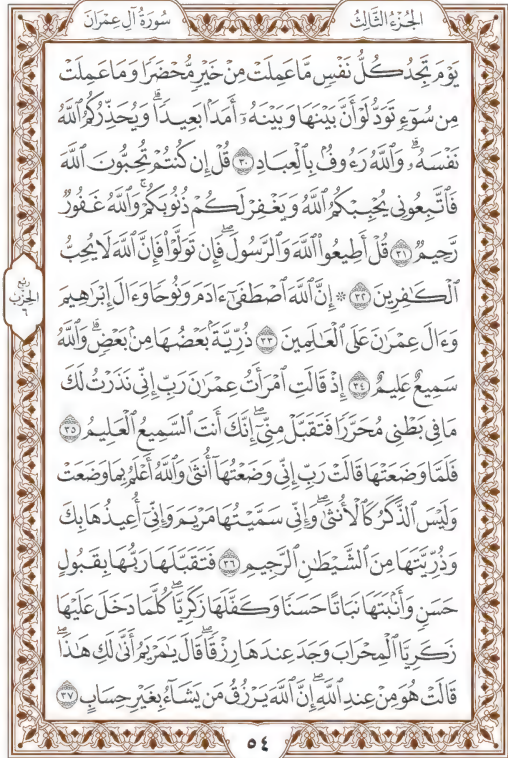 الجُزْءُ الثَّالِثُ
سُورَةُ آلِ عِمْرَانَ
يَوْمَ تَجِدُ كُلُّ نَفْسٍ مَّا عَمِلَتْ مِنْ خَيْرٍ مُّحْضَرًا وَمَا عَمِلَتْ
مِن سُوٓءٍ تَوَدُّ لَوْ أَنَّ بَيْنَهَا وَبَيْنَهُۥٓ أَمَدَۢا بَعِيدًاۗ وَيُحَذِّرُكُمُ ٱللَّهُ
نَفْسَهُۥۗ وَٱللَّهُ رَءُوفُۢ بِٱلْعِبَادِ ٣٠ قُلْ إِن كُنتُمْ تُحِبُّونَ ٱللَّهَ
فَٱتَّبِعُونِى يُحْبِبْكُمُ ٱللَّهُ وَيَغْفِرْ لَكُمْ ذُنُوبَكُمْۚ وَٱللَّهُ غَفُورٌ
رَّحِيمٌ ٣١ قُلْ أَطِيعُوا۟ ٱللَّهَ وَٱلرَّسُولَۖ فَإِن تَوَلَّوْا۟ فَإِنَّ ٱللَّهَ لَا يُحِبُّ
ٱلْكَٰفِرِينَ ٣٢ ۞ إِنَّ ٱللَّهَ ٱصْطَفَىٰٓ ءَادَمَ وَنُوحًا وَءَالَ إِبْرَٰهِيمَ
وَءَالَ عِمْرَٰنَ عَلَى ٱلْعَٰلَمِينَ ٣٣ ذُرِّيَّةَۢ بَعْضُهَا مِنۢ بَعْضٍۗ وَٱللَّهُ
سَمِيعٌ عَلِيمٌ ٣٤ إِذْ قَالَتِ ٱمْرَأَتُ عِمْرَٰنَ رَبِّ إِنِّى نَذَرْتُ لَكَ
مَا فِى بَطْنِى مُحَرَّرًا فَتَقَبَّلْ مِنِّىٓۖ إِنَّكَ أَنتَ ٱلسَّمِيعُ ٱلْعَلِيمُ ٣٥
فَلَمَّا وَضَعَتْهَا قَالَتْ رَبِّ إِنِّى وَضَعْتُهَآ أُنثَىٰ وَٱللَّهُ أَعْلَمُ بِمَا وَضَعَتْ
وَلَيْسَ ٱلذَّكَرُ كَٱلْأُنثَىٰۖ وَإِنِّى سَمَّيْتُهَا مَرْيَمَ وَإِنِّىٓ أُعِيذُهَا بِكَ
وَذُرِّيَّتَهَا مِنَ ٱلشَّيْطَٰنِ ٱلرَّجِيمِ ٣٦ فَتَقَبَّلَهَا رَبُّهَا بِقَبُولٍ
حَسَنٍ وَأَنۢبَتَهَا نَبَاتًا حَسَنًا وَكَفَّلَهَا زَكَرِيَّاۖ كُلَّمَا دَخَلَ عَلَيْهَا
زَكَرِيَّا ٱلْمِحْرَابَ وَجَدَ عِندَهَا رِزْقًاۖ قَالَ يَٰمَرْيَمُ أَنَّىٰ لَكِ هَٰذَاۖ
قَالَتْ هُوَ مِنْ عِندِ ٱللَّهِۖ إِنَّ ٱللَّهَ يَرْزُقُ مَن يَشَآءُ بِغَيْرِ حِسَابٍ ٣٧
رُبْعُ
الحِزْبِ
٦
٥٤